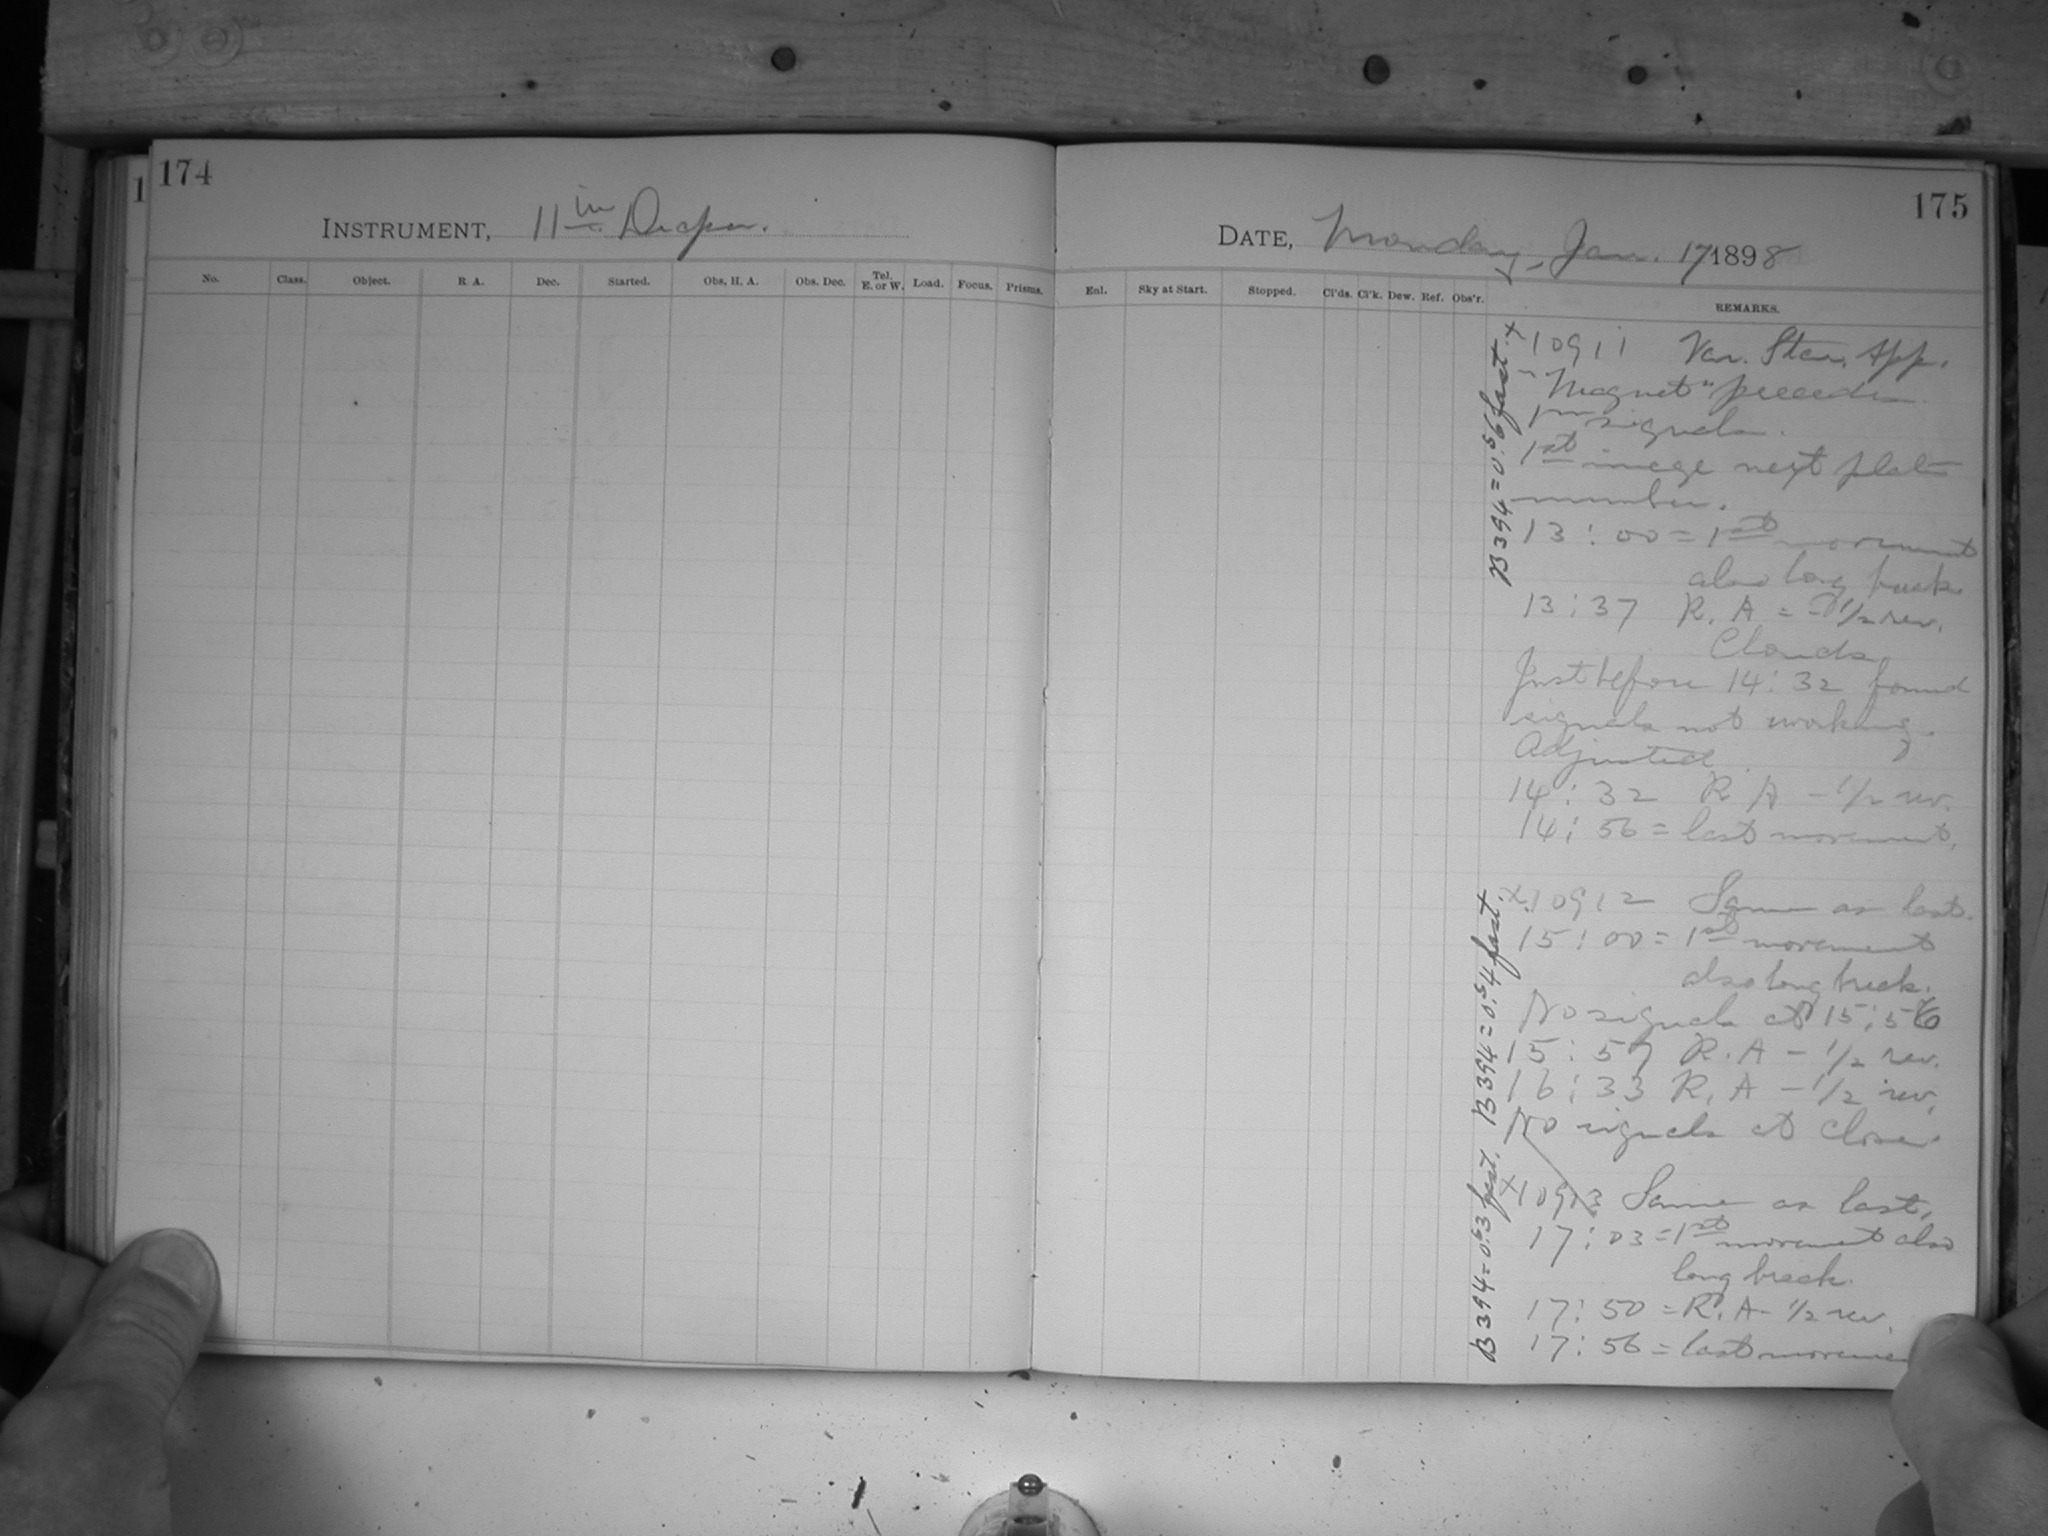 1
174
INSTRUMENT, 11 in. Draper.
No. Class. Object. R. A. Dec. Started. Obs. H. A. Obs. Dec. Tel. E. or W. Load. Focus. Prisms.
175
DATE, Monday, Jan. 17 1898
Enl. Sky at Start. Stopped. Cl'ds. Cl'k. Dew. Ref. Obs'r. REMARKS.
x 10911 Var. Star. App.
"Magnet" precedes
1m signals.
1st image next plate
number.
13 : 00 = 1st movement
also long break.
13 : 37 R. A = - 1/2 rev.
Clouds
Just before 14 : 32 found
signals not working.
Adjusted
14 : 32 R A - 1/2 rev.
14 : 56 = last movement.
B 394 = 0.s6 fast.
x 10912 Same as last.
15 : 00 = 1st movement
also long break.
No signals at 15 : 56
15 : 57 R. A - 1/2 rev.
16 : 33 R. A - 1/2 rev.
No signals at close
B 394 = 0.s4 fast.
x 10913 Same as last.
17 : 03 = 1st movement also
long break.
17 : 50 = R. A - 1/2 rev.
17 : 56 = last
B 394 = 0.s3 fast.